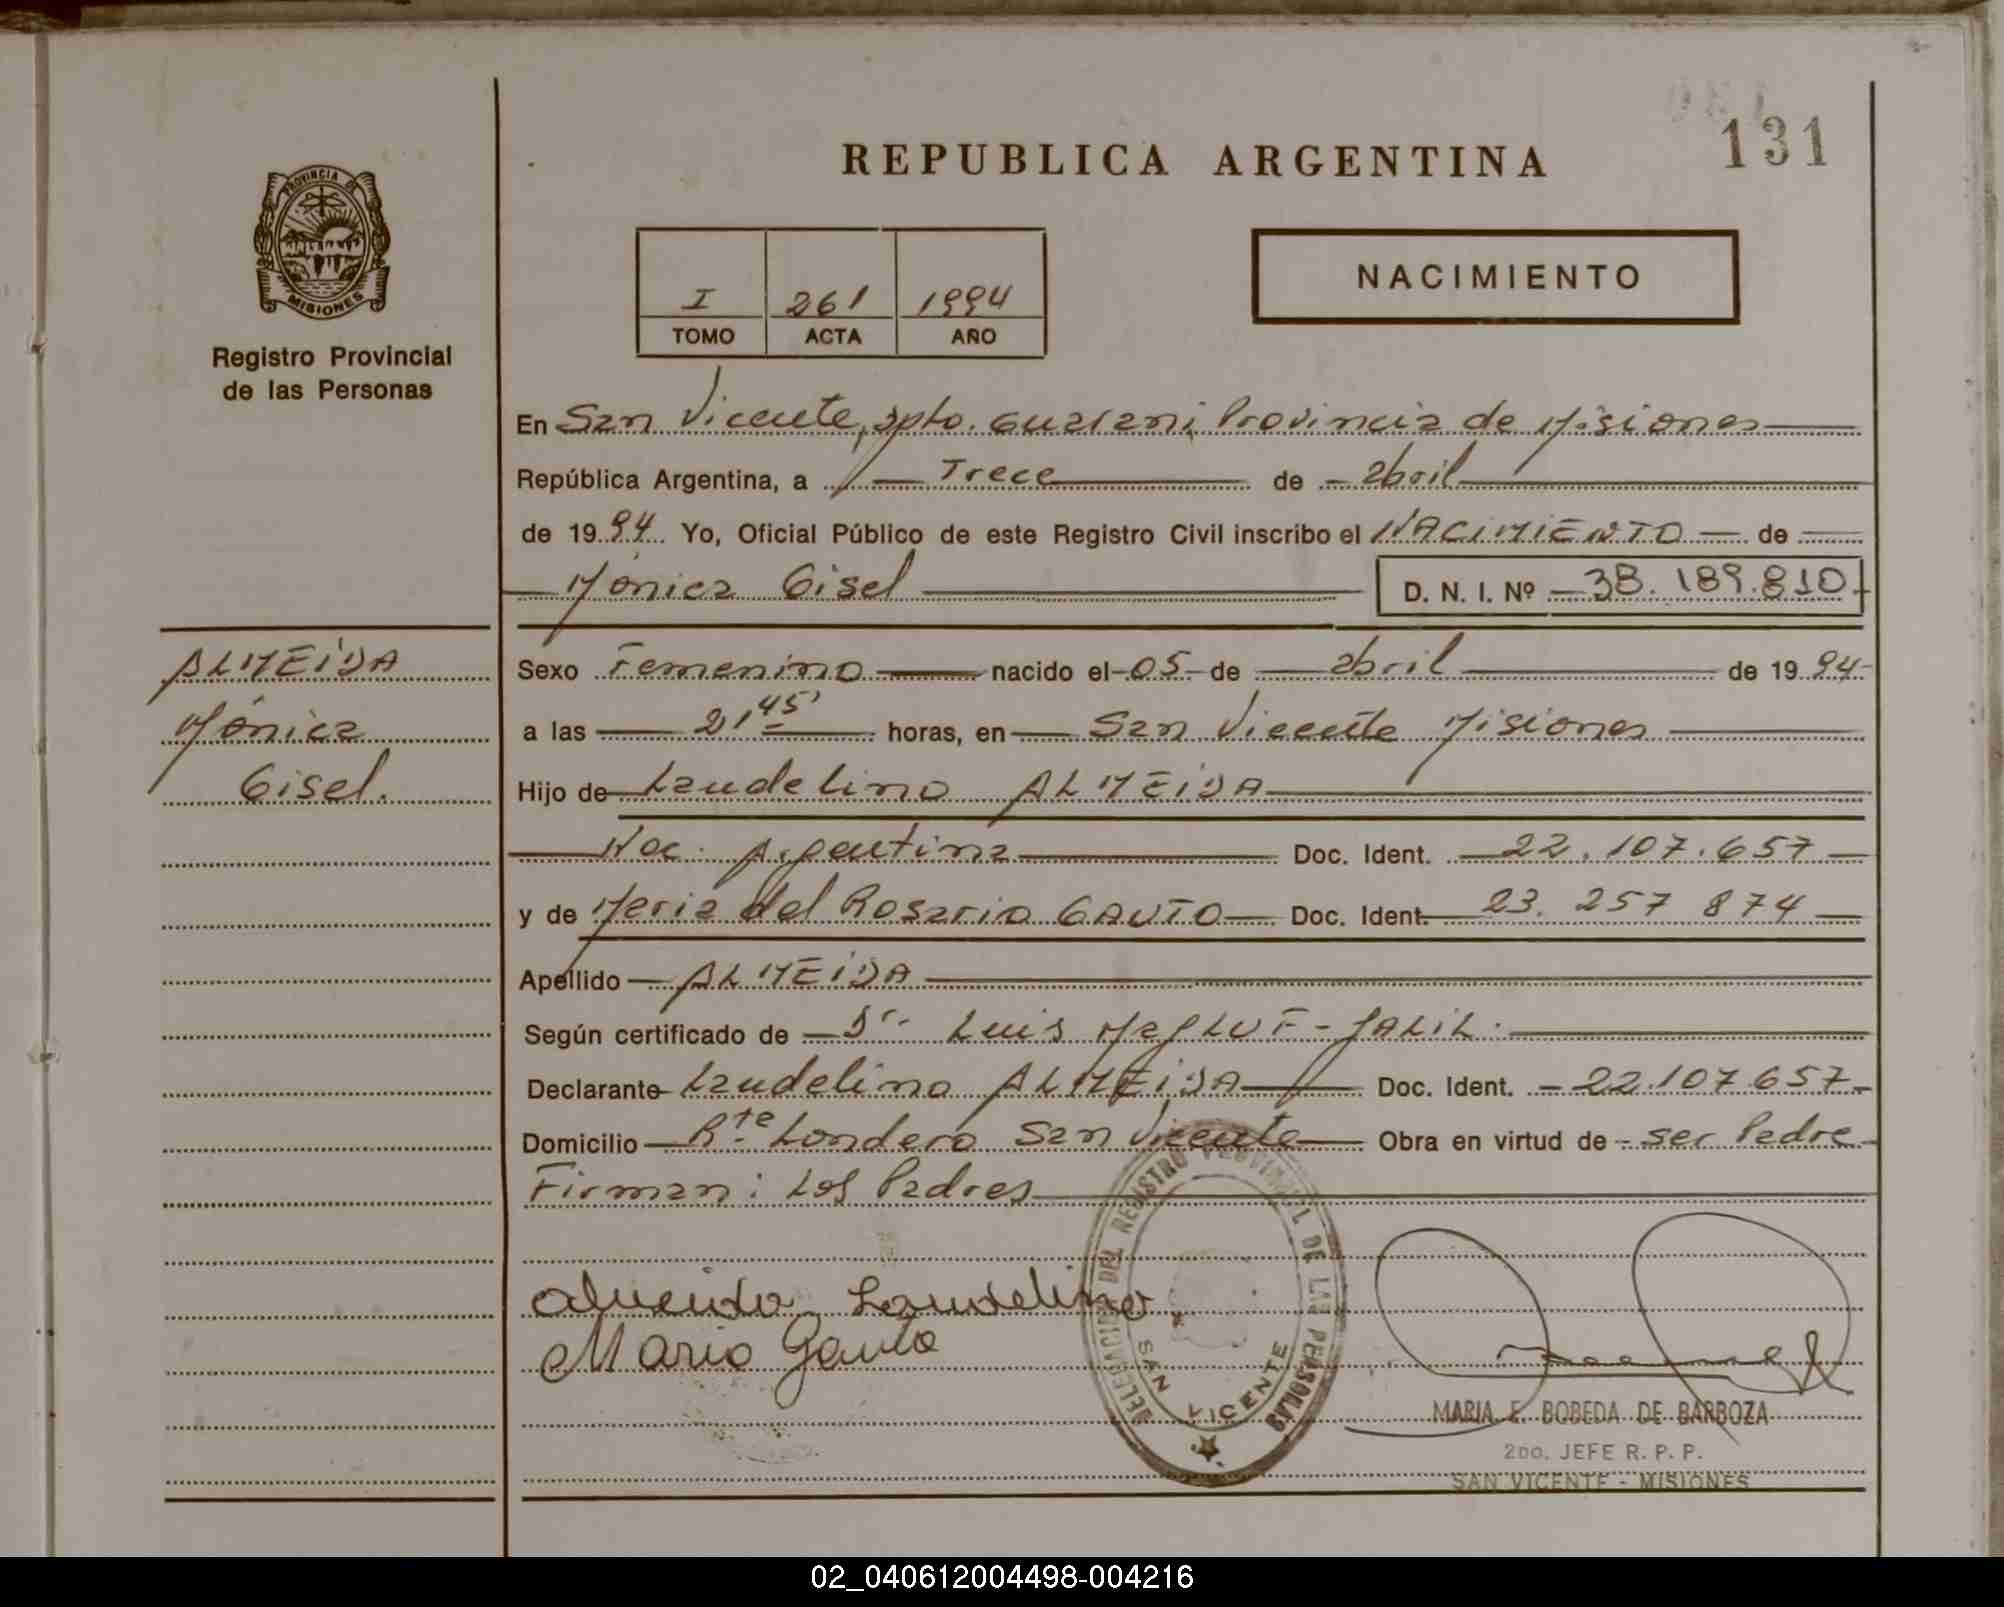 131
REPUBLICA ARGENTINA
PROVINCIA DE
MISIONES
Registro Provincial
de las Personas
I 261 1994
TOMO ACTA AÑO
NACIMIENTO
En San Vicente, Dpto. Guarani, Provincia de Misiones
República Argentina, a Trece de abril
de 1994 Yo, Oficial Público de este Registro Civil inscribo el NACIMIENTO de
Mónica Gisel D. N. I. Nº 38.189.810
ALMEIDA
Mónica
Gisel.
Sexo Femenino nacido el 05 de abril de 1994
a las 21 45' horas, en San Vicente Misiones
Hijo de Laudelino ALMEIDA
Nac. Argentina Doc. Ident. 22.107.657
y de Maria del Rosario GAUTO Doc. Ident. 23.257 874
Apellido ALMEIDA
Según certificado de Dr. Luis MagLUF-JALIL.
Declarante Laudelino ALMEIDA Doc. Ident. 22.107.657
Domicilio Rte Londero San Vicente Obra en virtud de ser Padre
Firman: Los Padres
Almeida Laudelino
Maria Gauto
DELEGACION DEL REGISTRO PROVINCIAL DE LAS PERSONAS
SAN VICENTE
MARIA E. BOBEDA DE BARBOZA
2DO. JEFE R. P. P.
SAN VICENTE - MISIONES
02_040612004498-004216